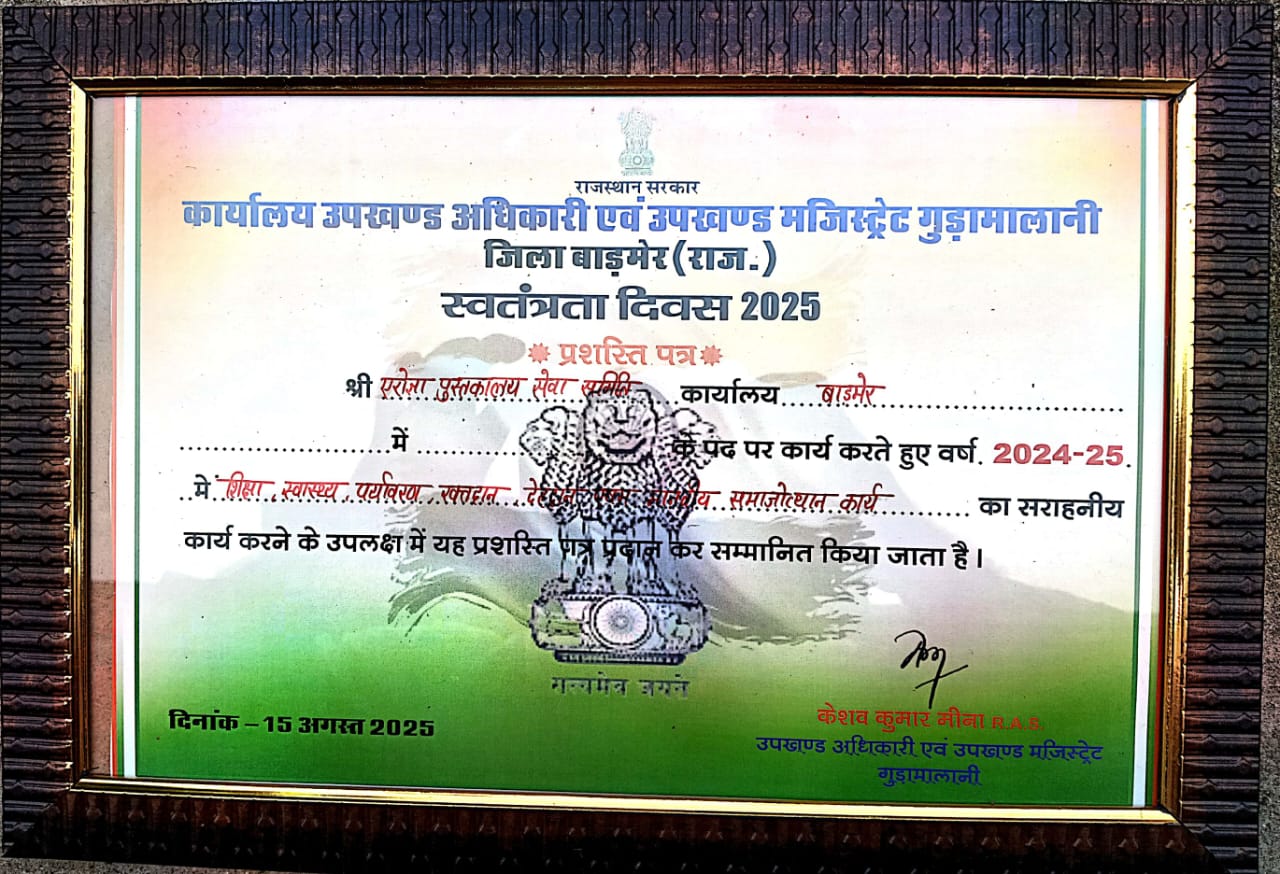 राजस्थान सरकार
कार्यालय उपखण्ड अधिकारी एवं उपखण्ड मजिस्ट्रेट गुड़ामालानी
जिला बाड़मेर (राज.)
स्वतंत्रता दिवस 2025
प्रशस्ति पत्र
श्री पुस्तकालय सेवा समिति कार्यालय बाड़मेर
में के पद पर कार्य करते हुए वर्ष. 2024-25.
में शिक्षा स्वास्थ्य पर्यावरण रक्तदान देहदान मानवीय समाजोत्थान कार्य का सराहनीय
कार्य करने के उपलक्ष में यह प्रशस्ति पत्र प्रदान कर सम्मानित किया जाता है।
सत्यमेव जयते
दिनांक – 15 अगस्त 2025
केशव कुमार मीना R.A.S.
उपखण्ड अधिकारी एवं उपखण्ड मजिस्ट्रेट
गुड़ामालानी